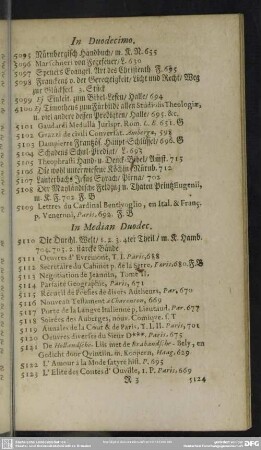 In Duodecimo.
5095 Nürnbergisch Handbuch/ m. K. N. 635
5096 Marschners von Fegfeuer/ L. 630
5097 Speners Evangel. Art des Christenth F. 695
5098 Franckens v. der Gerechtigkeit Licht und Recht/ Weg zur Glückseel. 3. Stück
5099 Ej Einleit. zum Bibel-Lesen/ Halle/ 694
5100 Ej Timotheus zum Fürbilde allen studiosis Theologiæ, u. viel andere dessen Predigten/ Halle/ 693. &c.
5101 Gaudarei Medulla Jurispr. Rom. l. 8. 651. G
5102 Grazzi de civili Conversat. Amberga, 598
5103 Dampierre Frantzös. Haupt-Schlüssel/ 696. F.
5104 Schadens Schul-Predigt/ L. 693
5105 Theophrasti Hand- u. Denck-Bibel/ Amst. 713
5106 Die wohl unterwiesene Köchin Nürnb. 712
5107 Lauterbachs Jesus Sprach/ Pirna/ 702
5108 Der Mayländische Feldzug u. Thaten Printz Eugenii, m. K. F. 702. F. B
5109 Lettres du Cardinal Bentivoglio, en Ital. & Franç. p. Veneroni, Paris, 692. F. B
In Median Duodec.
5110 Die Durchl. Welt/ 1. 2. 3. 4ter Theil/ m. K. Hamb. 704. 703. 2. starcke Bände
5111 Oeuvres d' Evremont, T. I. Paris, 688
5112 Secretaire du Cabinet p. de la Serre, Paris, 680. F. B
5113 Negotiation de Jeannin, Tom.
5114 Parfaite Geographie, Paris, 671
5115 Recueil de Poesies de divers Autheurs, Par. 670
5116 Nouveau Testament a Charenton, 669
5117 Porte de la Langve Italienne p. Lieutaud, Par. 677
5118 Soirées des Auberges, nouv. Comique. f. T
5119 Annales de la Cour & de Paris, T. I. II. Paris, 701
5120 Oeuvres diverses du Sieur D***. Paris, 675
5121 De Hollandsche Lis met de Brabandsche - Bely, en Gedicht door Quintijn. m. Koopern, Haag, 629
5122 L' Amour a la Mode satyre hist. P. 695
5123 L' Elite des Contes d' Ouville, 1. P. Paris, 669
R 3 5124